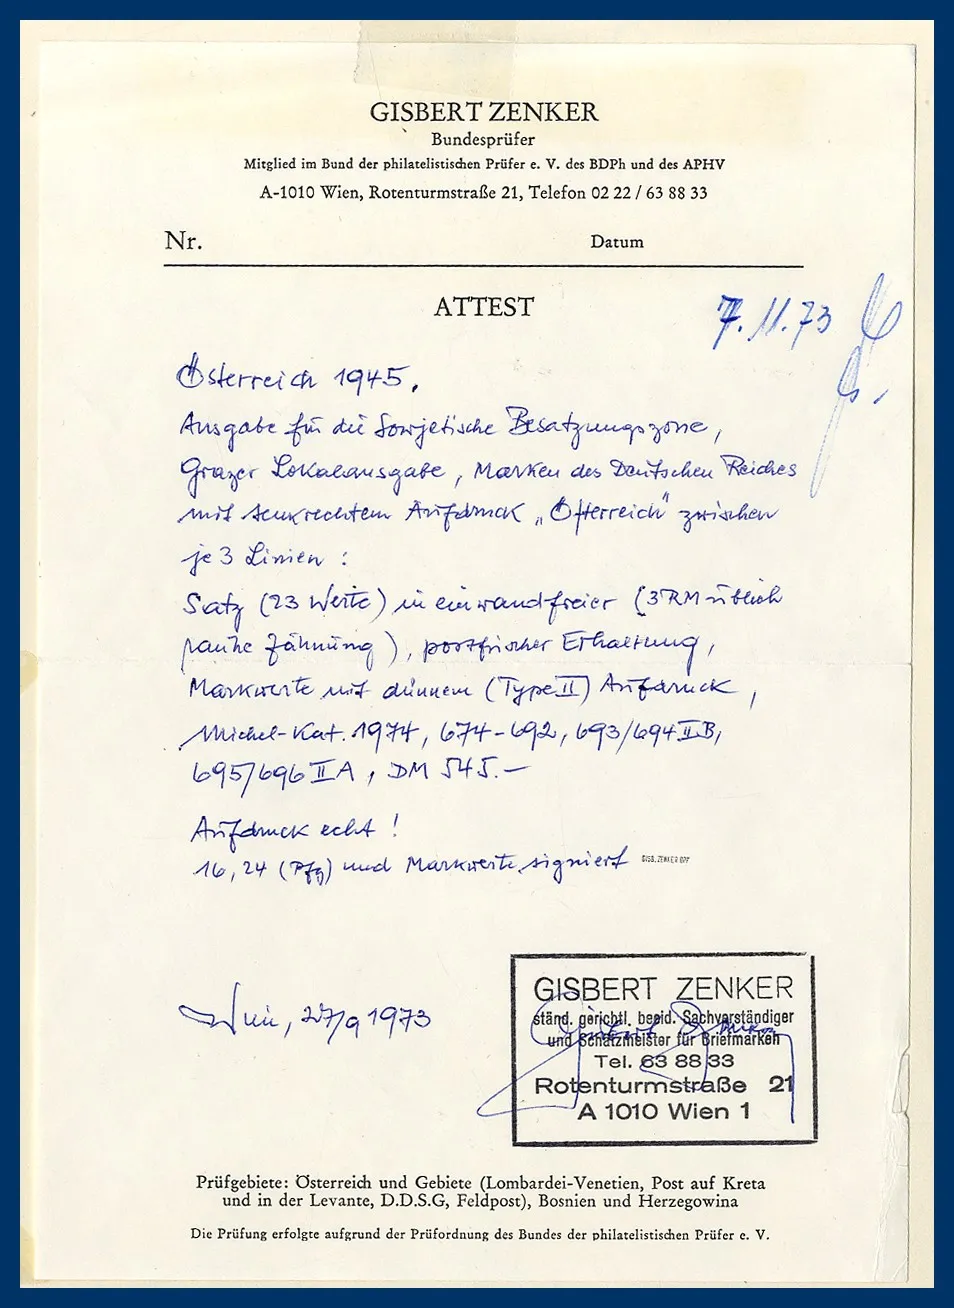 GISBERT ZENKER
Bundesprüfer
Mitglied im Bund der philatelistischen Prüfer e. V. des BDPh und des APHV
A-1010 Wien, Rotenturmstraße 21, Telefon 02 22 / 63 88 33
Nr.
Datum
ATTEST
7.11.73
Österreich 1945.
Ausgabe für die Sowjetische Besatzungszone,
Grazer Lokalausgabe, Marken des Deutschen Reiches
mit senkrechtem Aufdruck „Österreich" zwischen
je 3 Linien :
Satz (23 Werte) in einwandfreier (3RM üblich
rauhe Zähnung), postfrischer Erhaltung,
Markwerte mit dünnem (Type II) Aufdruck,
Michel-Kat. 1974, 674-692, 693/694 II B,
695/696 II A, DM 545.–
Aufdruck echt !
16, 24 (Pfg) und Markwerte signiert GISB. ZENKER BPP
Wien, 27/9 1973
GISBERT ZENKER
ständ. gerichtl. beeid. Sachverständiger
und Schätzmeister für Briefmarken
Tel. 63 88 33
Rotenturmstraße 21
A 1010 Wien 1
Prüfgebiete: Österreich und Gebiete (Lombardei-Venetien, Post auf Kreta
und in der Levante, D.D.S.G, Feldpost), Bosnien und Herzegowina
Die Prüfung erfolgte aufgrund der Prüfordnung des Bundes der philatelistischen Prüfer e. V.